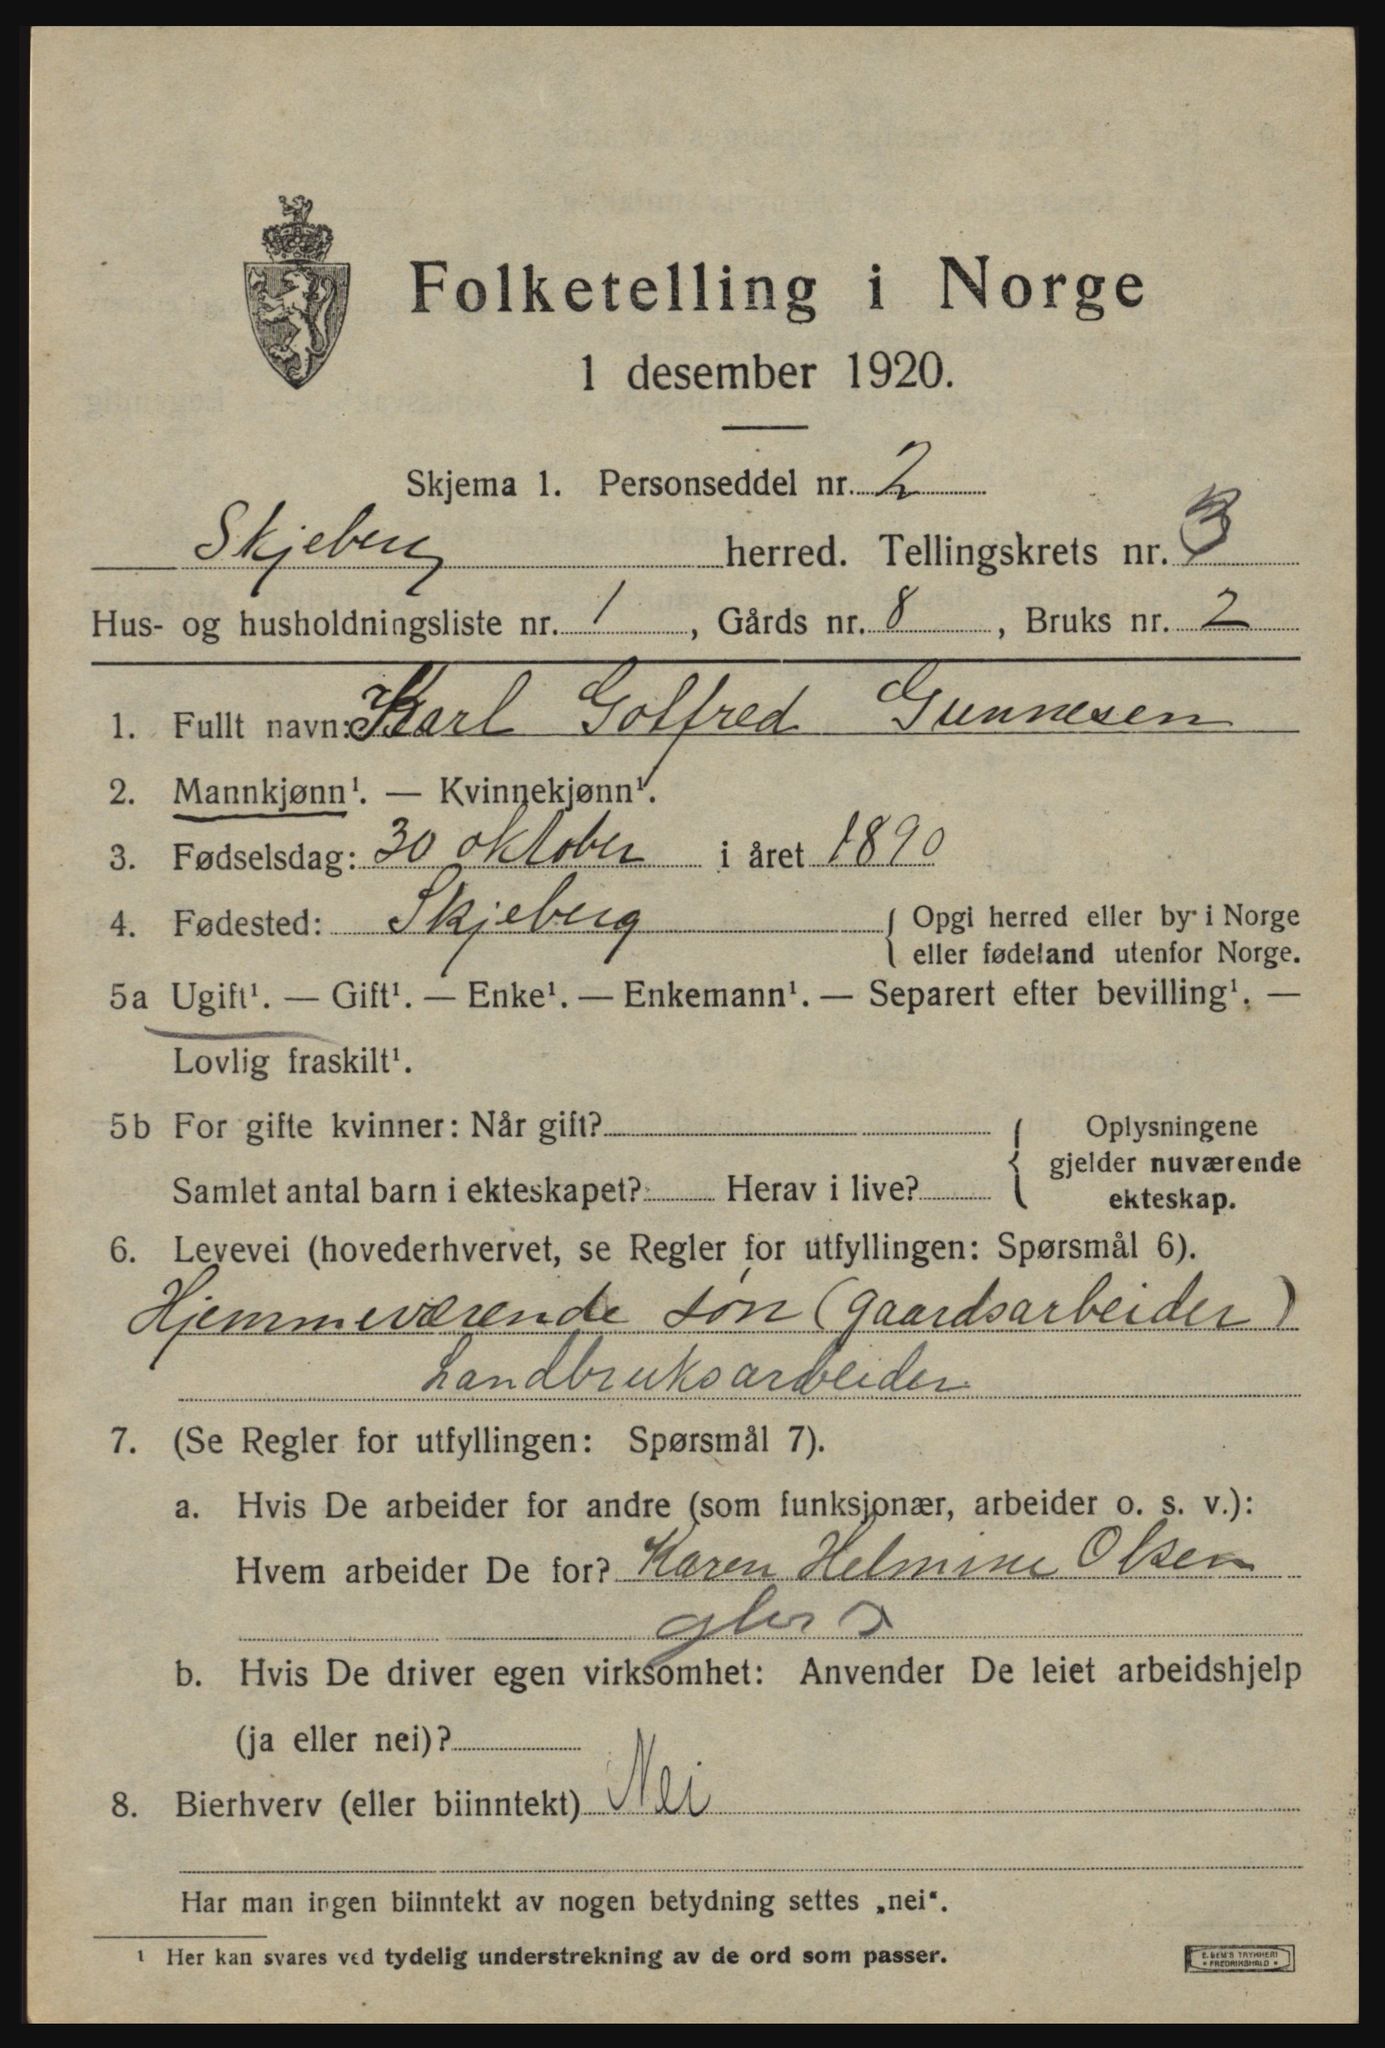 Folketelling i Norge
1 desember 1920.
Skjema 1. Personseddel nr. 2
Skjeberg herred. Tellingskrets nr. 3
Hus- og husholdningsliste nr. 1, Gårds nr. 8, Bruks nr. 2
1. Fullt navn: Karl Gotfred Gunnesen
2. Mannkjønn¹. — Kvinnekjønn¹.
3. Fødselsdag: 30 oktober i året 1890
4. Fødested: Skjeberg { Opgi herred eller by i Norge
eller fødeland utenfor Norge.
5a Ugift¹. — Gift¹. — Enke¹. — Enkemann¹. — Separert efter bevilling¹. —
Lovlig fraskilt¹.
5b For gifte kvinner: Når gift? { Oplysningene
gjelder nuværende
Samlet antal barn i ekteskapet? Herav i live? ekteskap.
6. Levevei (hovederhvervet, se Regler for utfyllingen: Spørsmål 6).
Hjemmeværende søn (gaardsarbeider)
Landbruksarbeider
7. (Se Regler for utfyllingen: Spørsmål 7).
a. Hvis De arbeider for andre (som funksjonær, arbeider o. s. v.):
Hvem arbeider De for? Karen Helmine Olsen
b. Hvis De driver egen virksomhet: Anvender De leiet arbeidshjelp
(ja eller nei)?
8. Bierhverv (eller biinntekt) Nei
Har man ingen biinntekt av nogen betydning settes „nei“.
¹ Her kan svares ved tydelig understrekning av de ord som passer.
E. SEM'S TRYKKERI
• FREDRIKSHALD •